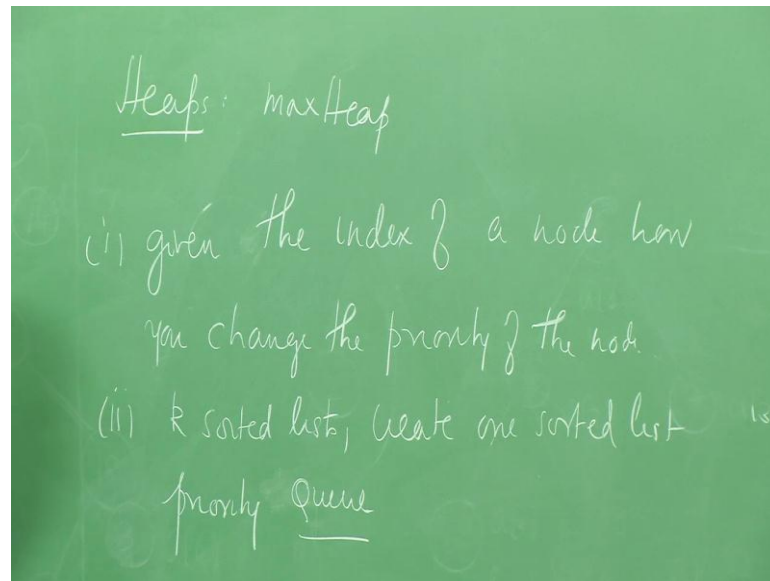 Heaps: maxHeap
(i) given the index of a node how
you change the priority of the node.
(ii) k sorted lists, create one sorted list
priority Queue